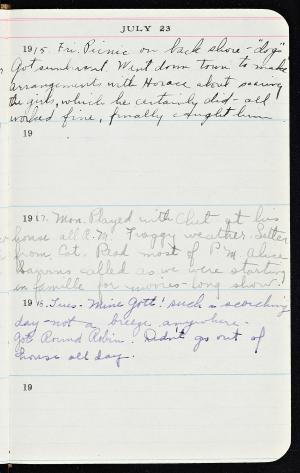 JULY 23
1915. Fri. Picnic on back shore - "dogs"
Got sunburnt. Went down town to make
arrangement with Horace about scaring
the girls, which he certainly did - all
worked fine, finally caught him
19
1917. Mon. Played with Chet at his
house all A.M. Foggy weather. Letter
from Cat. Read most of P.M. Alice
called as we were starting
en famille for movies - long show!
1918. Tues. Mine Gott! such a scorching
day - not a breeze anywhere.
Got Round Robin. Didn't go out of
house all day.
19